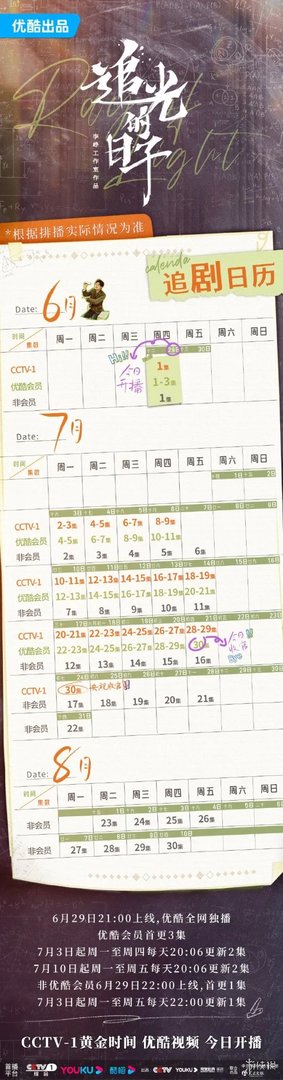 优酷出品
追光的日子
李峥工作室作品
*根据排播实际情况为准
calenda
追剧日历
Date: 6月
时间 集数 周一 周二 周三 周四 周五 周六 周日
29日 30日
CCTV-1 1集
优酷会员 1-3集
非会员 1集
Hi!!
今日开播
Date: 7月
时间 集数 周一 周二 周三 周四 周五 周六 周日
1日 2日
3日 4日 5日 6日 7日 8日 9日
CCTV-1 2-3集 4-5集 6-7集 8-9集
优酷会员 4-5集 6-7集 8-9集 10-11集
非会员 2集 3集 4集 5集 6集
CCTV-1 10-11集 12-13集 14-15集 16-17集 18-19集
优酷会员 12-13集 14-15集 16-17集 18-19集 20-21集
非会员 7集 8集 9集 10集 11集
CCTV-1 20-21集 22-23集 24-25集 26-27集 28-29集
优酷会员 22-23集 24-25集 26-27集 28-29集 30集
非会员 12集 13集 14集 15集 16集
今日收官
CCTV-1 30集 央视收官!!
非会员 17集 18集 19集 20集 21集
31日
非会员 22集
Date: 8月
时间 集数 周一 周二 周三 周四 周五 周六 周日
1日 2日 3日 4日 5日 6日
非会员 23集 24集 25集 26集
7日 8日 9日 10日 11日 12日 13日
非会员 27集 28集 29集 30集
6月29日21:00上线,优酷全网独播
优酷会员首更3集
7月3日起周一至周四每天20:06更新2集
7月10日起周一至周五每天20:06更新2集
非优酷会员6月29日22:00上线,首更1集
7月3日起周一至周五每天22:00更新1集
CCTV-1黄金时间 优酷视频 今日开播
首播平台 CCTV 1 综合 YOUKU 优酷 YOUKU